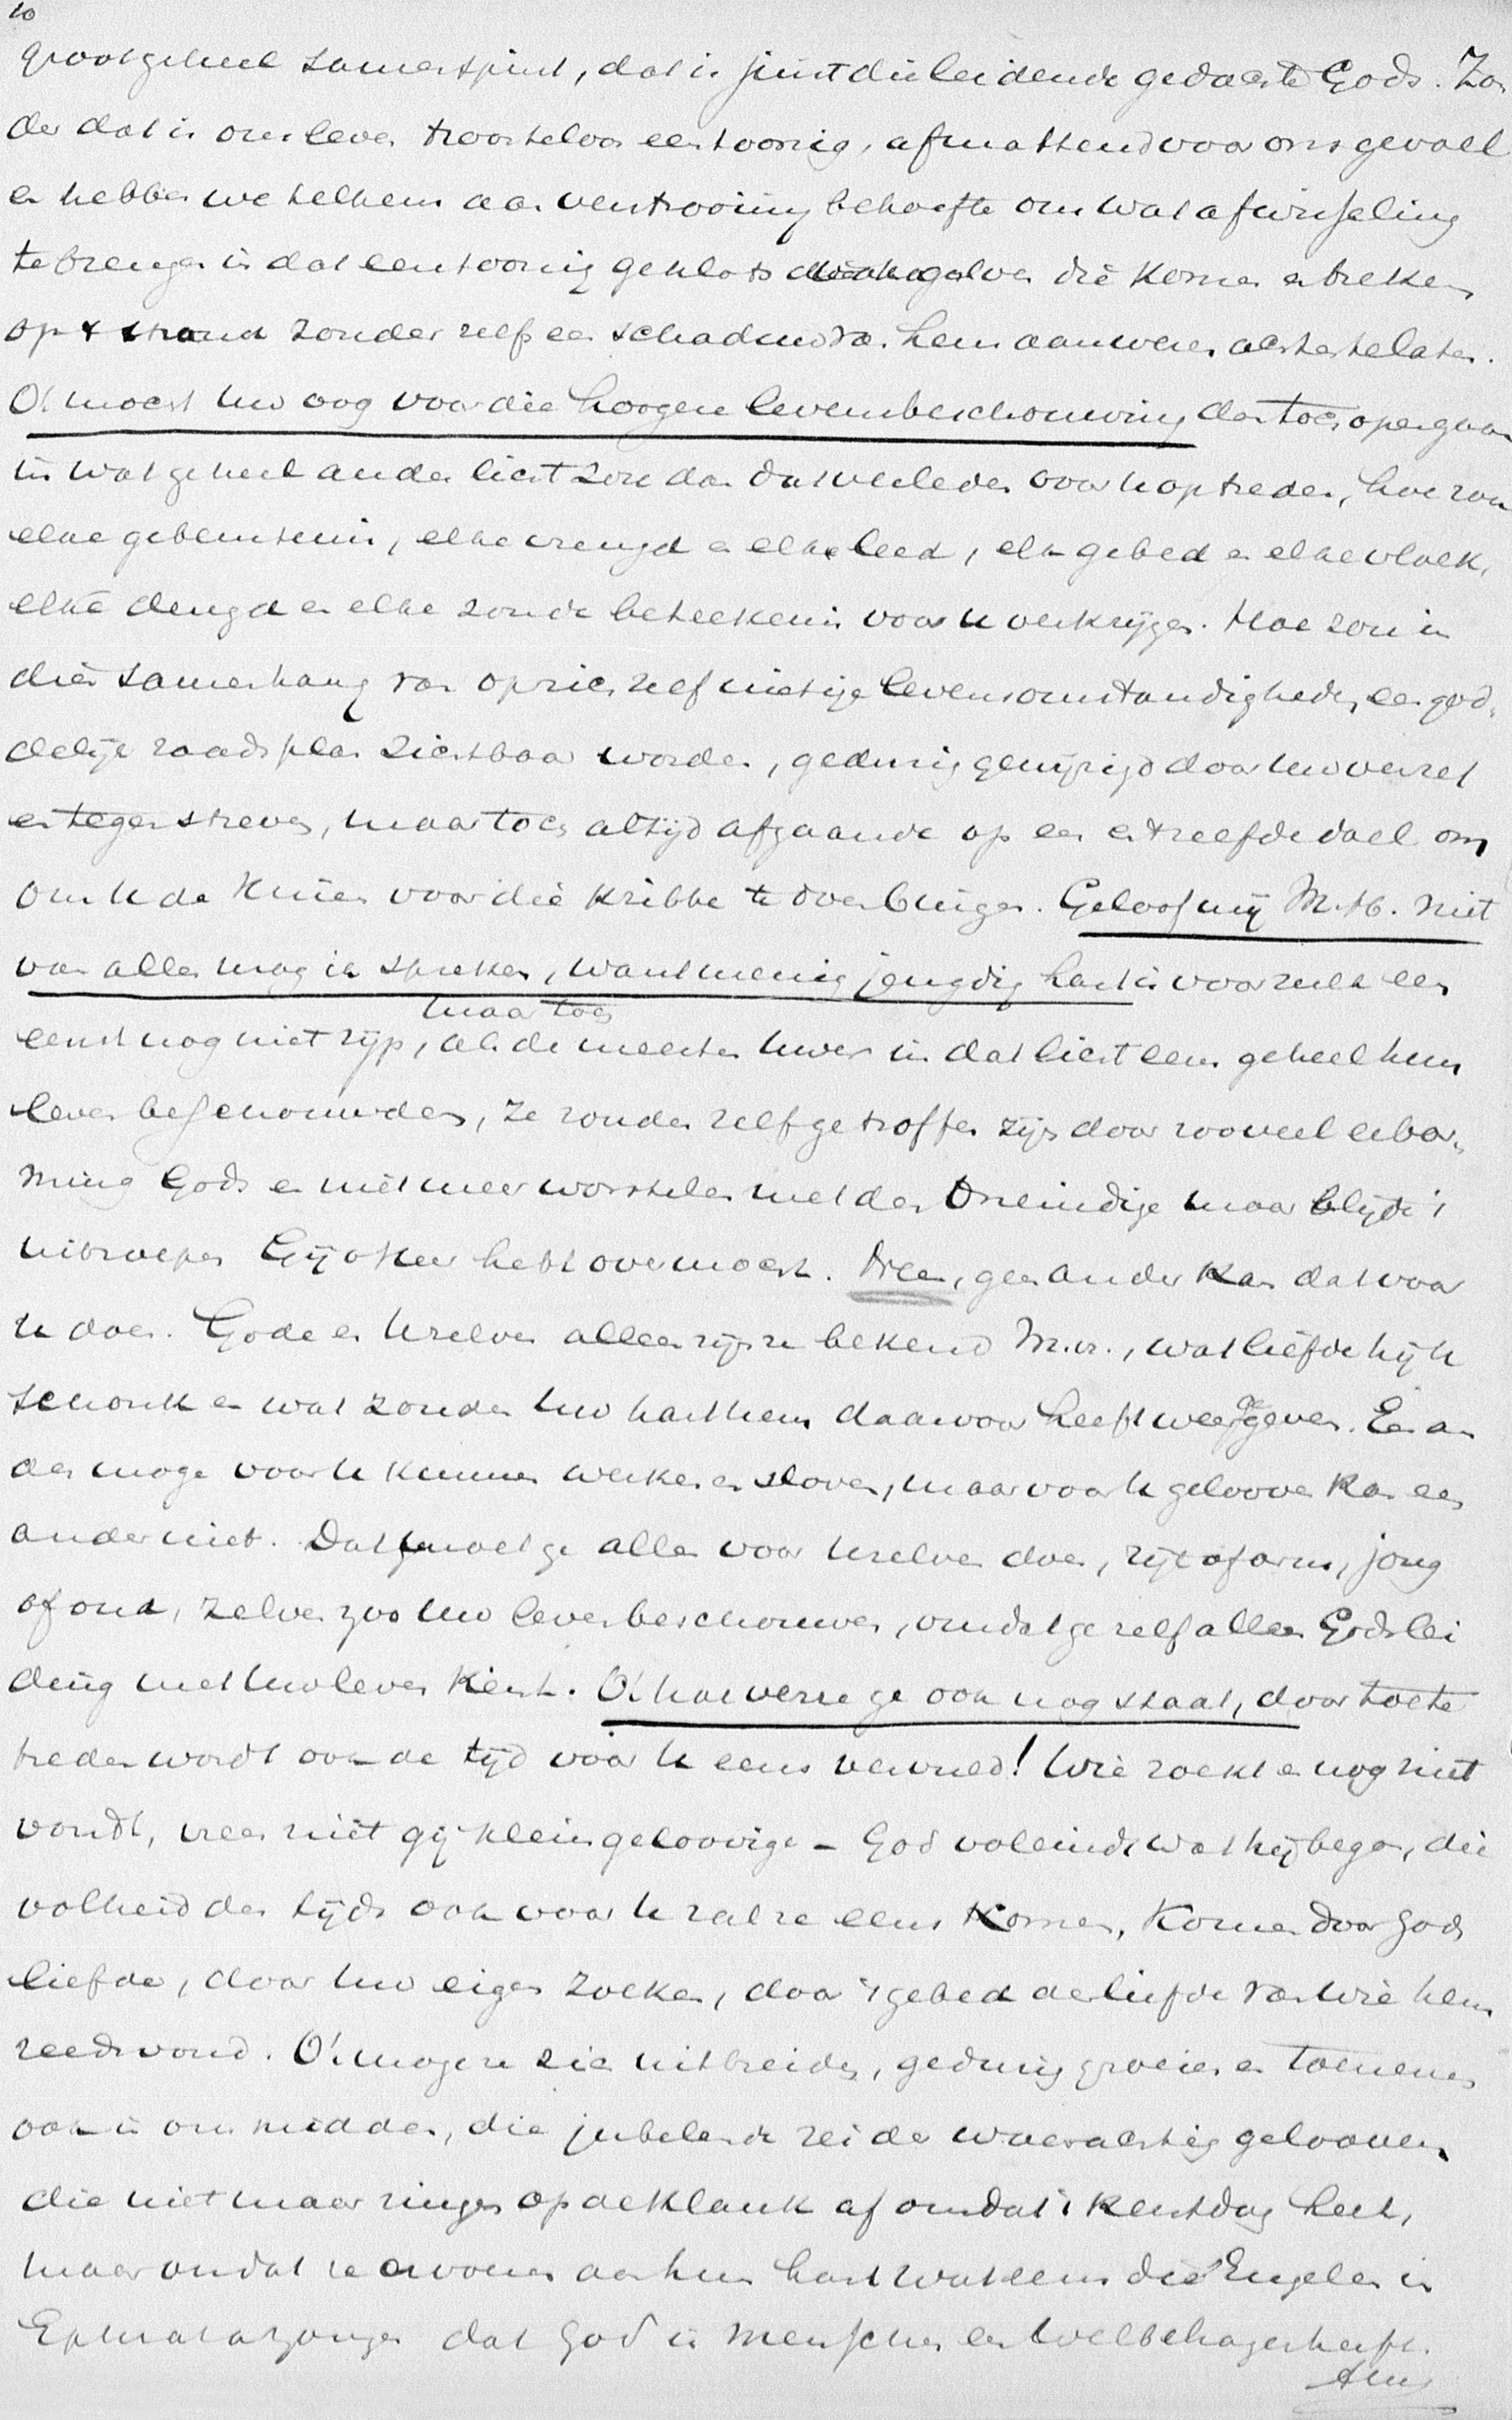 10
groot geheel samenspint, dat is juist die leidende gedachte Gods. Zon
der dat is ons leven troosteloos eentoonig, afmattend voor ons gevoel
en hebben we telkens aan verstrooiing behoefte om wat afwisseling
te brengen in dat eentoonig geklots der golven die komen en breken
op 't strand zonder zelf een schaduw van hun aanwezen achter te laten.
O! mocht uw oog voor die hoogere levensbeschouwing dan toch opengaan
in wat geheel ander licht zou dan dat verleden voor u optreden, hoe zou
elke gebeurtenis, elke vreugd en elke leed, elk gebed en elke vloek,
elke deugd en elke zonde beteekenis voor u verkrijgen. Hoe zou in
dien samenhang van op zich zelf nietige levensomstandigheden, een god-
delijk raadsplan zichtbaar worden, gedurig gewijzigd door uw verzet
en tegenstreven, maar toch altijd afgaande op een en 'tzelfde doel om
om u de knieën voor die kribbe te doen buigen. Geloof mij M.H. niet
van allen mag ik spreken, want menig jeugdig hart is voor zulk een
maar toch
ernst nog niet rijp, als de meesten uwer in dat licht eens geheel hun
leven beschouwden, ze zouden zelf getroffen zijn door zooveel erbar-
ming Gods en niet meer worstelen met den Oneindige maar blijde 't
uitroepen Gij o Heer hebt overmocht. Neen, geen ander kan dat voor
u doen. Gode en uzelven alleen zijn ze bekend M.V., wat liefde hij u
schonk en wat zonden uw hart hem daarvoor heeft weergegeven. Een an
der moge voor u kunnen werken en sloven, maar voor u gelooven kan een
ander niet. Dat moet ge allen voor uzelven doen, rijk of arm, jong
of oud, zelven zoo uw leven beschouwen, omdat ge zelf alleen Gods lei
ding met uw leven kent. O! hoe verre ge ook nog staat, door toe te
treden wordt ook de tijd voor u eens vervuld! Wie zoekt en nog niet
vondt, vrees niet gij kleingeloovige – God voleindt wat hij begon, die
volheid des tijds ook voor u zal ze eens komen, komen door Gods
liefde, door uw eigen zoeken, door 't gebed der liefde van wie hem
reeds vond. O! moge ze zich uitbreiden, gedurig groeien en toenemen
ook in ons midden, die jubelende rei der waarachtig geloovenden
die niet maar zingen op de klank af omdat 't Kerstdag heet,
maar omdat ze ervoeren aan hun hart wat eens die Engelen in
Ephrata zongen dat God in menschen een welbehagen heeft.
Amen